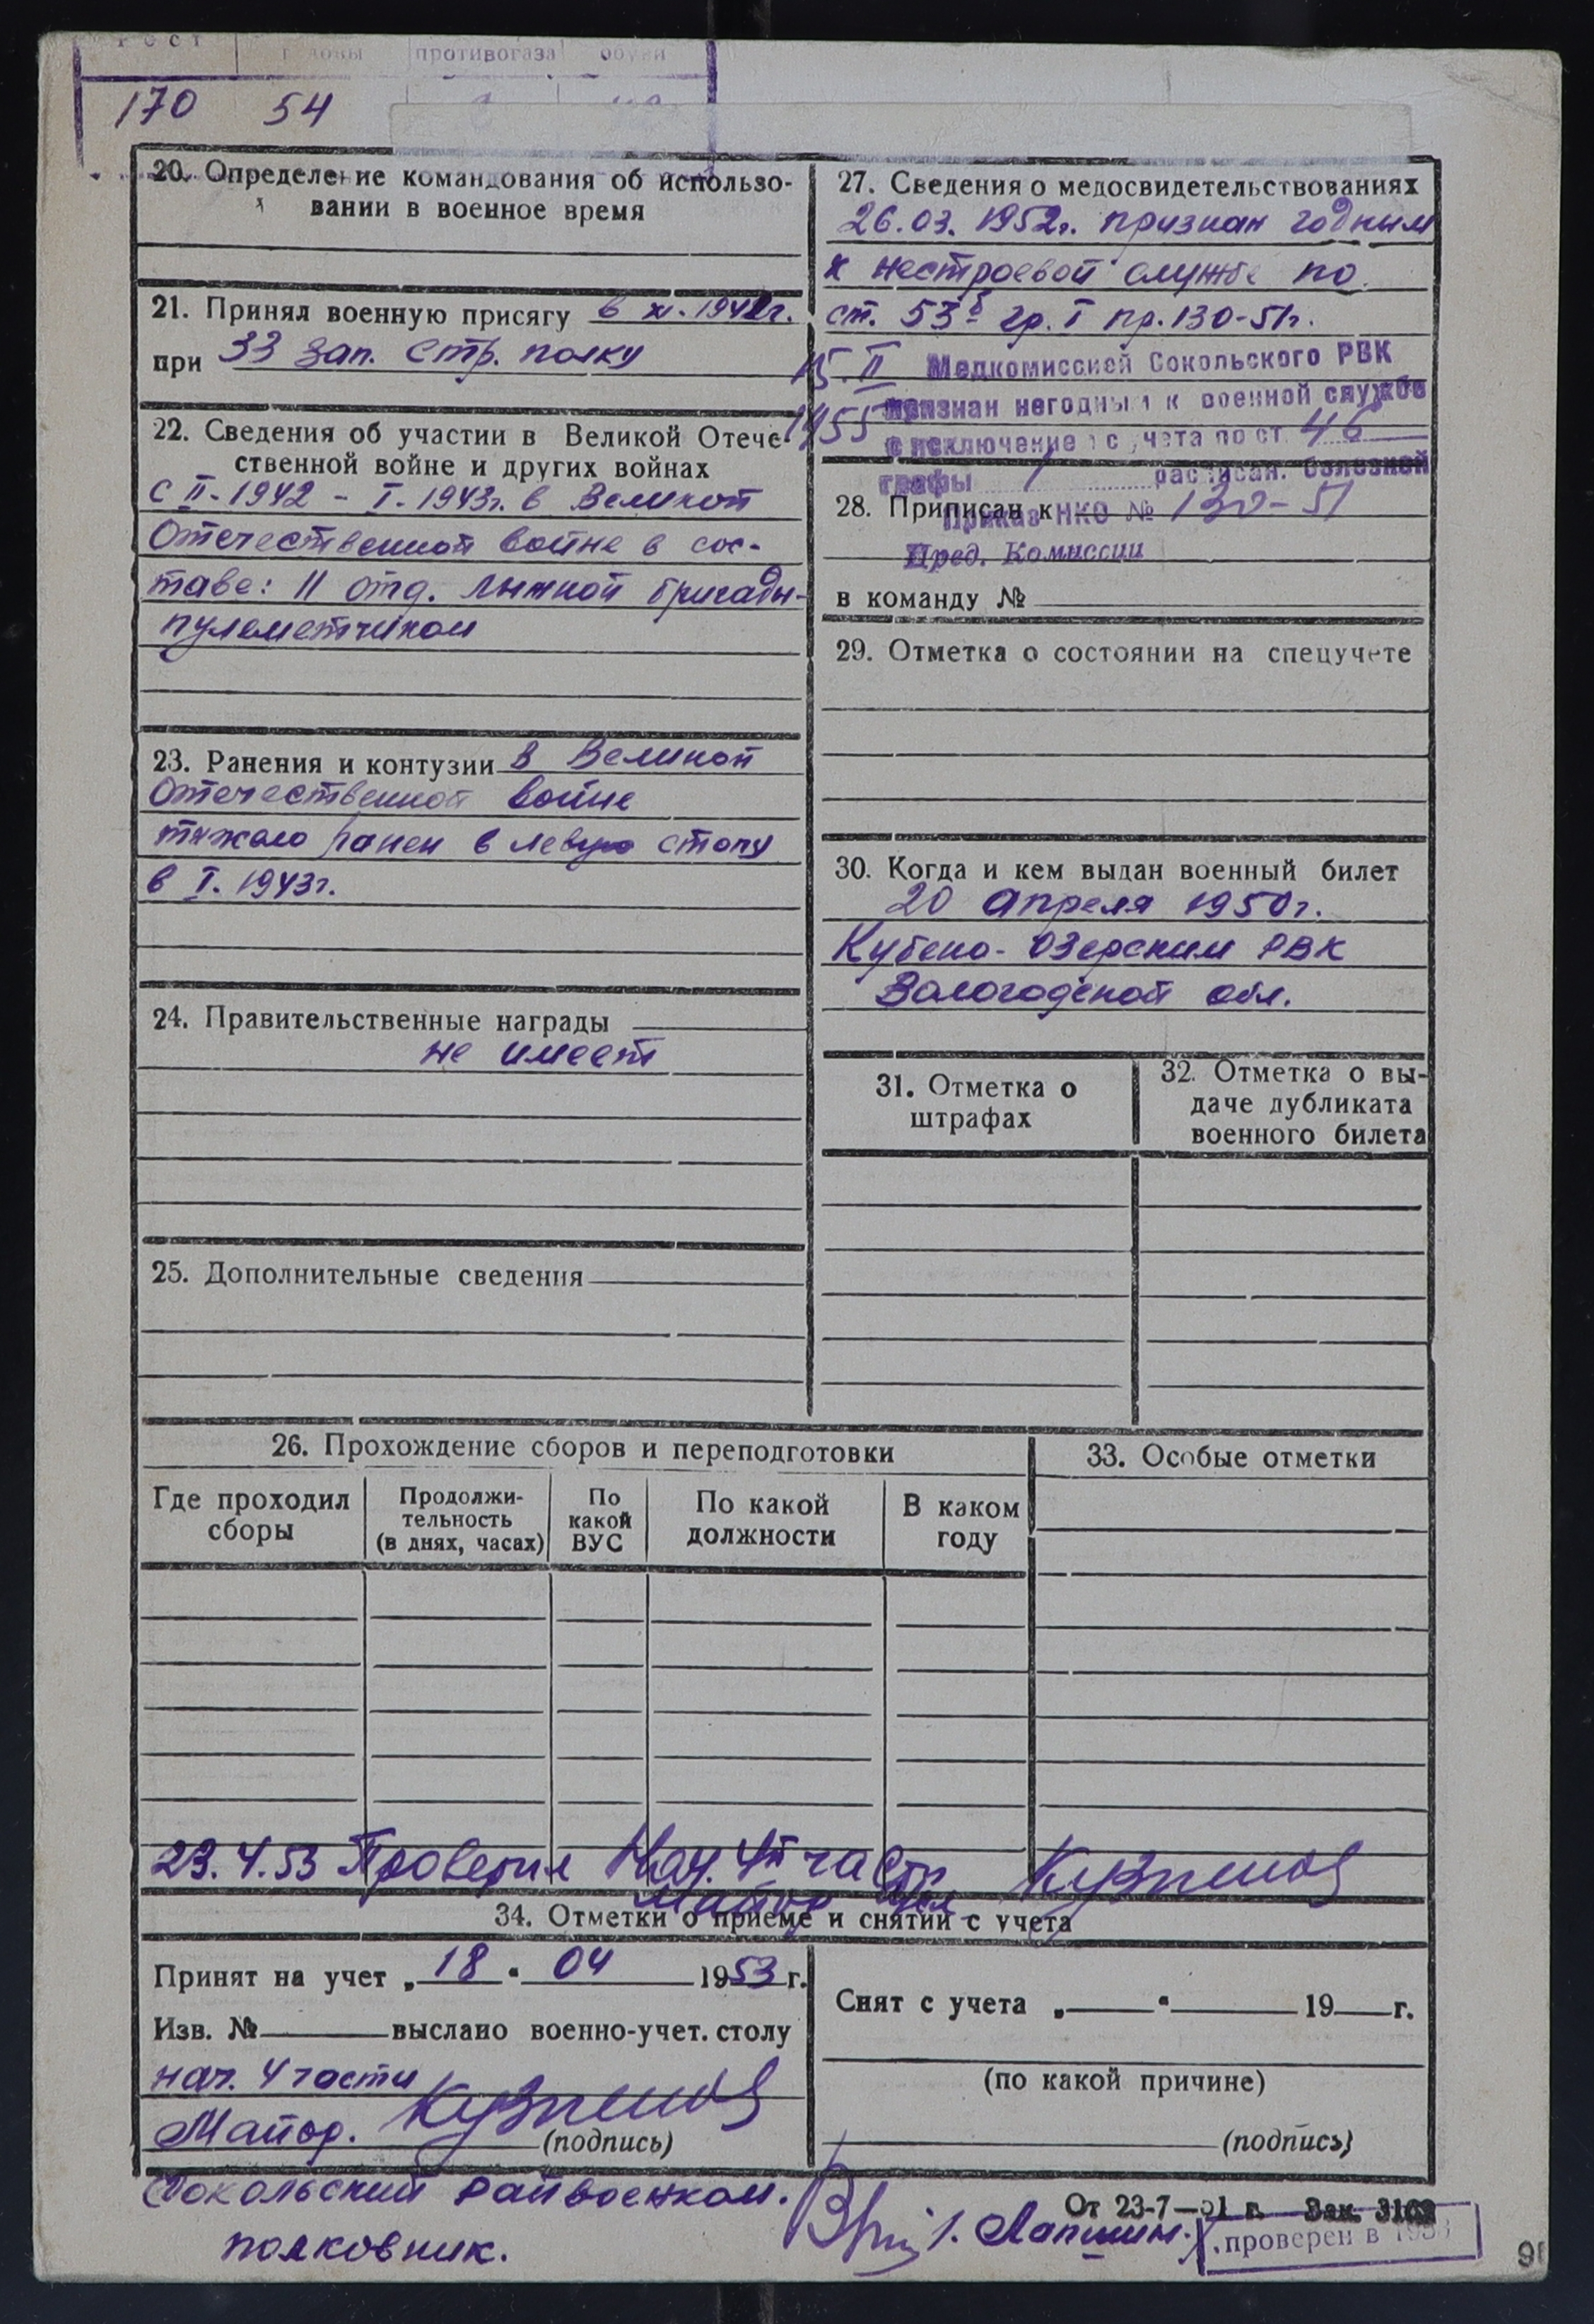 Рост головы противогаза обуви
170 54
20. Определение командования об использо-
вании в военное время
21. Принял военную присягу в XI.1941г.
при 33 зап. стр. полку
22. Сведения об участии в Великой Отече-
ственной войне и других войнах
с II-1942 - I-1943г. в Великой
Отечественной войне в сос-
таве: 11 отд. лыжной бригады-
пулеметчиком
23. Ранения и контузии в Великой
Отечественной войне
тяжело ранен в левую стопу
в I.1943г.
24. Правительственные награды
не имеет
25. Дополнительные сведения
27. Сведения о медосвидетельствованиях
26.03.1952г. признан годным
к нестроевой службе по
ст. 53б гр. I пр. 130-51г.
15.II Медкомиссией Сокольского РВК
1955 признан негодным к военной службе
с исключением с учета по ст. 46
графы 1 расписан. болезней
Приказ НКО № 130-51
28. Приписан к
Пред. Комиссии
в команду №
29. Отметка о состоянии на спецучете
30. Когда и кем выдан военный билет
20 апреля 1950г.
Кубено-Озерским РВК
Вологодской обл.
31. Отметка о
штрафах
32. Отметка о вы-
даче дубликата
военного билета
26. Прохождение сборов и переподготовки
Где проходил
сборы
Продолжи-
тельность
(в днях, часах)
По
какой
ВУС
По какой
должности
В каком
году
33. Особые отметки
23.4.53 Проверил Нач. 4й части Кузнецов
майор
34. Отметки о приеме и снятии с учета
Принят на учет „18“ 04 1953 г.
Изв. № выслано военно-учет. столу
нач. 4 части
Майор. Кузнецов
(подпись)
Снят с учета „ “ 19 г.
(по какой причине)
(подпись)
Сокольский Райвоенком.
полковник.
Лапшин.
От 23-7—51 г. Зак. 3162
проверен в 1953